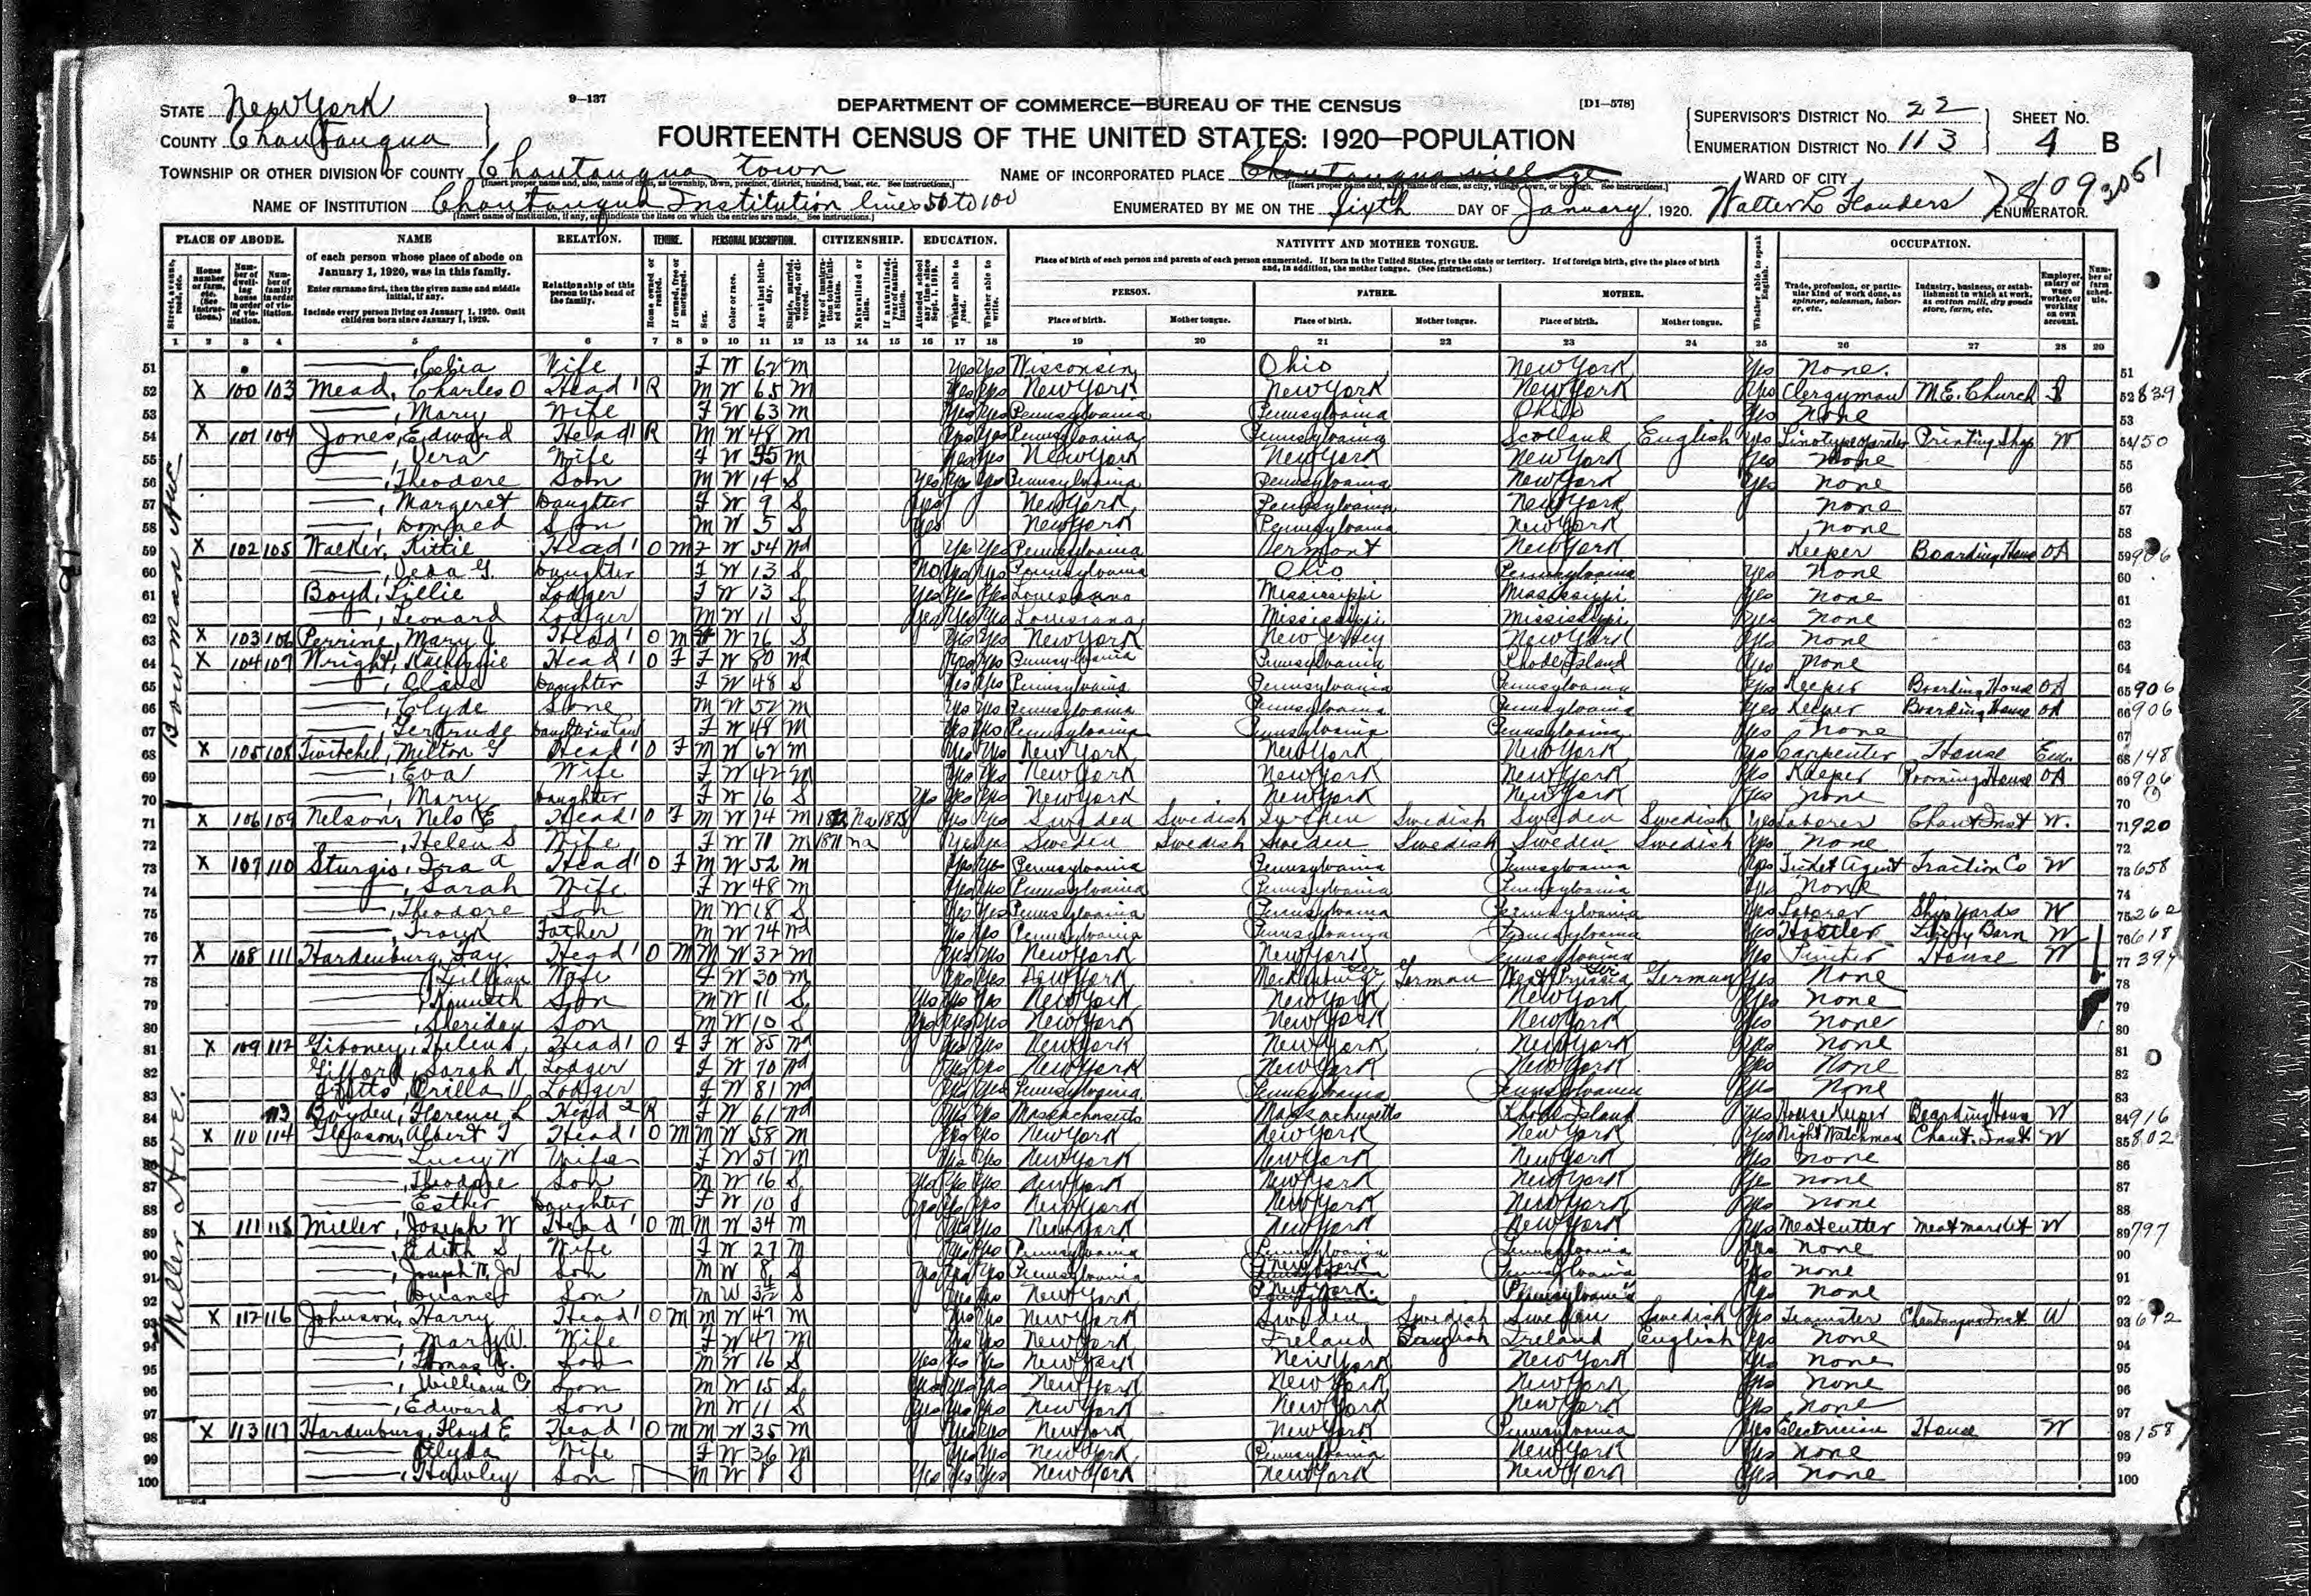 9—137
DEPARTMENT OF COMMERCE—BUREAU OF THE CENSUS
[D1—578]
STATE New York
COUNTY Chautauqua
FOURTEENTH CENSUS OF THE UNITED STATES: 1920—POPULATION
SUPERVISOR'S DISTRICT No. 22
ENUMERATION DISTRICT No. 113
SHEET No. 4 B
TOWNSHIP OR OTHER DIVISION OF COUNTY Chautauqua town
NAME OF INCORPORATED PLACE Chautauqua village
WARD OF CITY
NAME OF INSTITUTION Chautauqua Institution lines 50 to 100
ENUMERATED BY ME ON THE Sixth DAY OF January, 1920. Walter L Flanders ENUMERATOR.
PLACE OF ABODE. NAME RELATION. TENURE. PERSONAL DESCRIPTION. CITIZENSHIP. EDUCATION. NATIVITY AND MOTHER TONGUE. OCCUPATION.
of each person whose place of abode on January 1, 1920, was in this family.
Enter surname first, then the given name and middle initial, if any.
Include every person living on January 1, 1920. Omit children born since January 1, 1920.
Relationship of this person to the head of the family.
Place of birth of each person and parents of each person enumerated. If born in the United States, give the state or territory. If of foreign birth, give the place of birth and, in addition, the mother tongue. (See instructions.)
PERSON. FATHER. MOTHER.
Place of birth. Mother tongue. Place of birth. Mother tongue. Place of birth. Mother tongue.
1 2 3 4 5 6 7 8 9 10 11 12 13 14 15 16 17 18 19 20 21 22 23 24 25 26 27 28 29
Bowman Ave
51 Celia Wife F W 62 M Yes Yes Wisconsin Ohio New York Yes None. 51
52 X 100 103 Mead, Charles O Head 1 R M W 65 M Yes Yes New York New York New York Yes Clergyman M.E. Church 52 839
53 Mary Wife F W 63 M Yes Yes Pennsylvania Pennsylvania Ohio Yes None 53
54 X 101 104 Jones, Edward Head 1 R M W 48 M Yes Yes Pennsylvania Pennsylvania Scotland English Yes Linotype operator Printing Shop W 54 150
55 Vera Wife F W 35 M Yes Yes New York New York New York Yes None 55
56 Theodore Son M W 14 S Yes Yes Yes Pennsylvania Pennsylvania New York Yes None 56
57 Margeret Daughter F W 9 S Yes New York Pennsylvania New York None 57
58 Son M W 5 S Yes New York Pennsylvania New York None 58
59 X 102 105 Walker, Kittie Head 1 O M F W 54 Wd Yes Yes Pennsylvania Vermont New York Keeper Boarding House OA 59 906
60 Veda G. Daughter F W 13 S No Yes Yes Pennsylvania Ohio Pennsylvania Yes None 60
61 Boyd, Lillie Lodger F W 13 S Yes Yes Yes Louisiana Mississippi Mississippi Yes None 61
62 Leonard Lodger M W 11 S Yes Yes Yes Louisiana Mississippi Mississippi Yes None 62
63 X 103 106 Perrine, Mary J Head 1 O M F W 76 S Yes Yes New York New Jersey New York Yes None 63
64 X 104 107 Wright, Head 1 O F F W 80 Wd Yes Yes Pennsylvania Pennsylvania Rhode Island Yes None 64
65 Daughter F W 48 S Yes Yes Pennsylvania Pennsylvania Pennsylvania Yes Keeper Boarding House OA 65 906
66 Clyde Sone M W 52 M Yes Yes Pennsylvania Pennsylvania Pennsylvania Yes Keeper Boarding House OA 66 906
67 Gertrude Daughter in Law F W 48 M Yes Yes Pennsylvania Pennsylvania Pennsylvania Yes None 67
68 X 105 108 Twitchel, Milton G Head 1 O F M W 62 M Yes Yes New York New York New York Yes Carpenter House Em. 68 148
69 Eva Wife F W 42 M Yes Yes New York New York New York Yes Keeper Rooming House OA 69 906
70 Mary Daughter F W 16 S Yes Yes Yes New York New York New York Yes None 70
71 X 106 109 Nelson, Nels E Head 1 O F M W 74 M Na 1875 Yes Yes Sweden Swedish Sweden Swedish Sweden Swedish Yes Laborer Chaut Inst W. 71 920
72 Helen S Wife F W 71 M 1871 Na Yes Yes Sweden Swedish Sweden Swedish Sweden Swedish Yes None 72
73 X 107 110 Sturgis, Ira A Head 1 O F M W 52 M Yes Yes Pennsylvania Pennsylvania Pennsylvania Yes Ticket Agent Traction Co W 73 658
74 Sarah Wife F W 48 M Yes Yes Pennsylvania Pennsylvania Pennsylvania Yes None 74
75 Theodore Son M W 18 S Yes Yes Pennsylvania Pennsylvania Pennsylvania Yes Laborer Ship Yards W 75 262
76 Frank Father M W 74 Wd Yes Yes Pennsylvania Pennsylvania Pennsylvania Yes Hostler Livery Barn W 76 618
77 X 108 111 Hardenburg, Fay Head 1 O M M W 32 M Yes Yes New York New York Pennsylvania Yes House W 77 394
78 Lillian Wife F W 30 M Yes Yes New York Mecklenburg Ger German West Prussia Ger German Yes None 78
79 Kenneth Son M W 11 S Yes Yes Yes New York New York New York Yes None 79
80 Sheridan Son M W 10 S Yes Yes Yes New York New York New York Yes None 80
Miller Ave.
81 X 109 112 Giboney, Helen Head 1 O F F W 85 Wd Yes Yes New York New York New York Yes None 81
82 Gifford, Sarah Lodger F W 70 Wd Yes Yes New York New York New York Yes None 82
83 Orilla Lodger F W 81 Wd Yes Yes Pennsylvania Pennsylvania Pennsylvania Yes None 83
84 113 Boyden, Florence L Head 2 R F W 61 Wd Yes Yes Massachusetts Massachusetts Rhode Island Yes House Keeper Boarding House W 84 916
85 X 110 114 Gleason, Albert T Head 1 O M M W 58 M Yes Yes New York New York New York Yes Night Watchman Chaut. Inst W 85 802
86 Lucy W Wife F W 51 M Yes Yes New York New York New York Yes None 86
87 Theodore Son M W 16 S Yes Yes Yes New York New York New York Yes None 87
88 Esther Daughter F W 10 S Yes Yes Yes New York New York New York Yes None 88
89 X 111 115 Miller, Joseph W Head 1 O M M W 34 M Yes Yes New York New York New York Yes Meatcutter Meat market W 89 797
90 Edith S Wife F W 27 M Yes Yes Pennsylvania Pennsylvania Pennsylvania Yes None 90
91 Joseph W. Jr Son M W 8 S Yes Yes Yes Pennsylvania New York Pennsylvania Yes None 91
92 Duane Son M W S Yes Yes New York New York. Pennsylvania Yes None 92
93 X 112 116 Johnson, Harry Head 1 O M M W 47 M Yes Yes New York Sweden Swedish Sweden Swedish Yes Teamster Chautauqua Inst W 93 692
94 Mary W. Wife F W 47 M Yes Yes New York Ireland English Ireland English Yes None 94
95 Thomas Son M W 16 S Yes Yes Yes New York New York New York Yes None 95
96 William C Son M W 15 S Yes Yes Yes New York New York New York Yes None 96
97 Edward Son M W 11 S Yes Yes Yes New York New York New York Yes None 97
98 X 113 117 Hardenburg, Floyd E Head 1 O M M W 35 M Yes Yes New York New York Pennsylvania Yes Electrician House W 98 158
99 Wife F W 36 M Yes Yes New York Pennsylvania New York Yes None 99
100 Hawley Son M W 8 S Yes Yes Yes New York New York New York Yes None 100